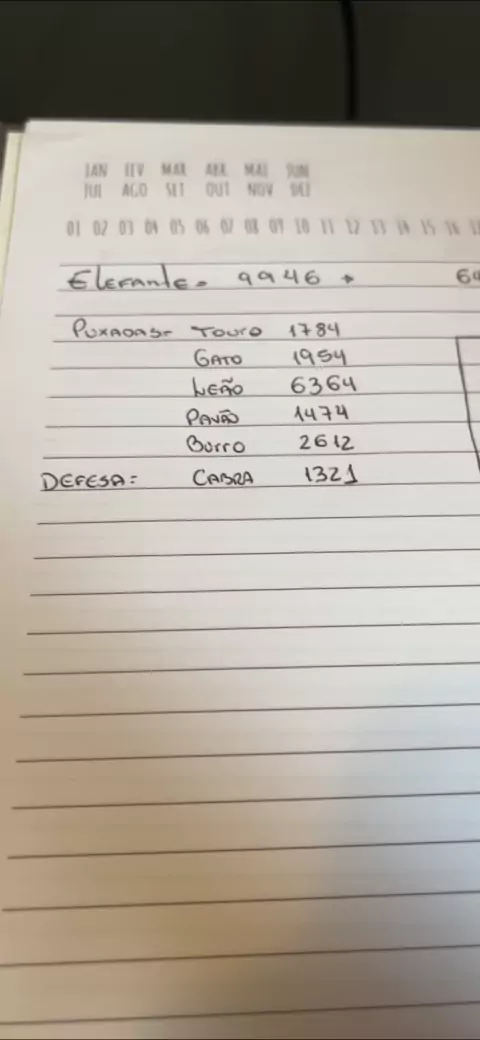 JAN FEV MAR ABR MAI JUN
JUL AGO SET OUT NOV DEZ
01 02 03 04 05 06 07 08 09 10 11 12 13 14 15 16
Elefante = 9946 * 64
Puxadas = Touro 1784
Gato 1954
Leão 6364
Pavão 1474
Burro 2612
DEFESA = CABRA 1321